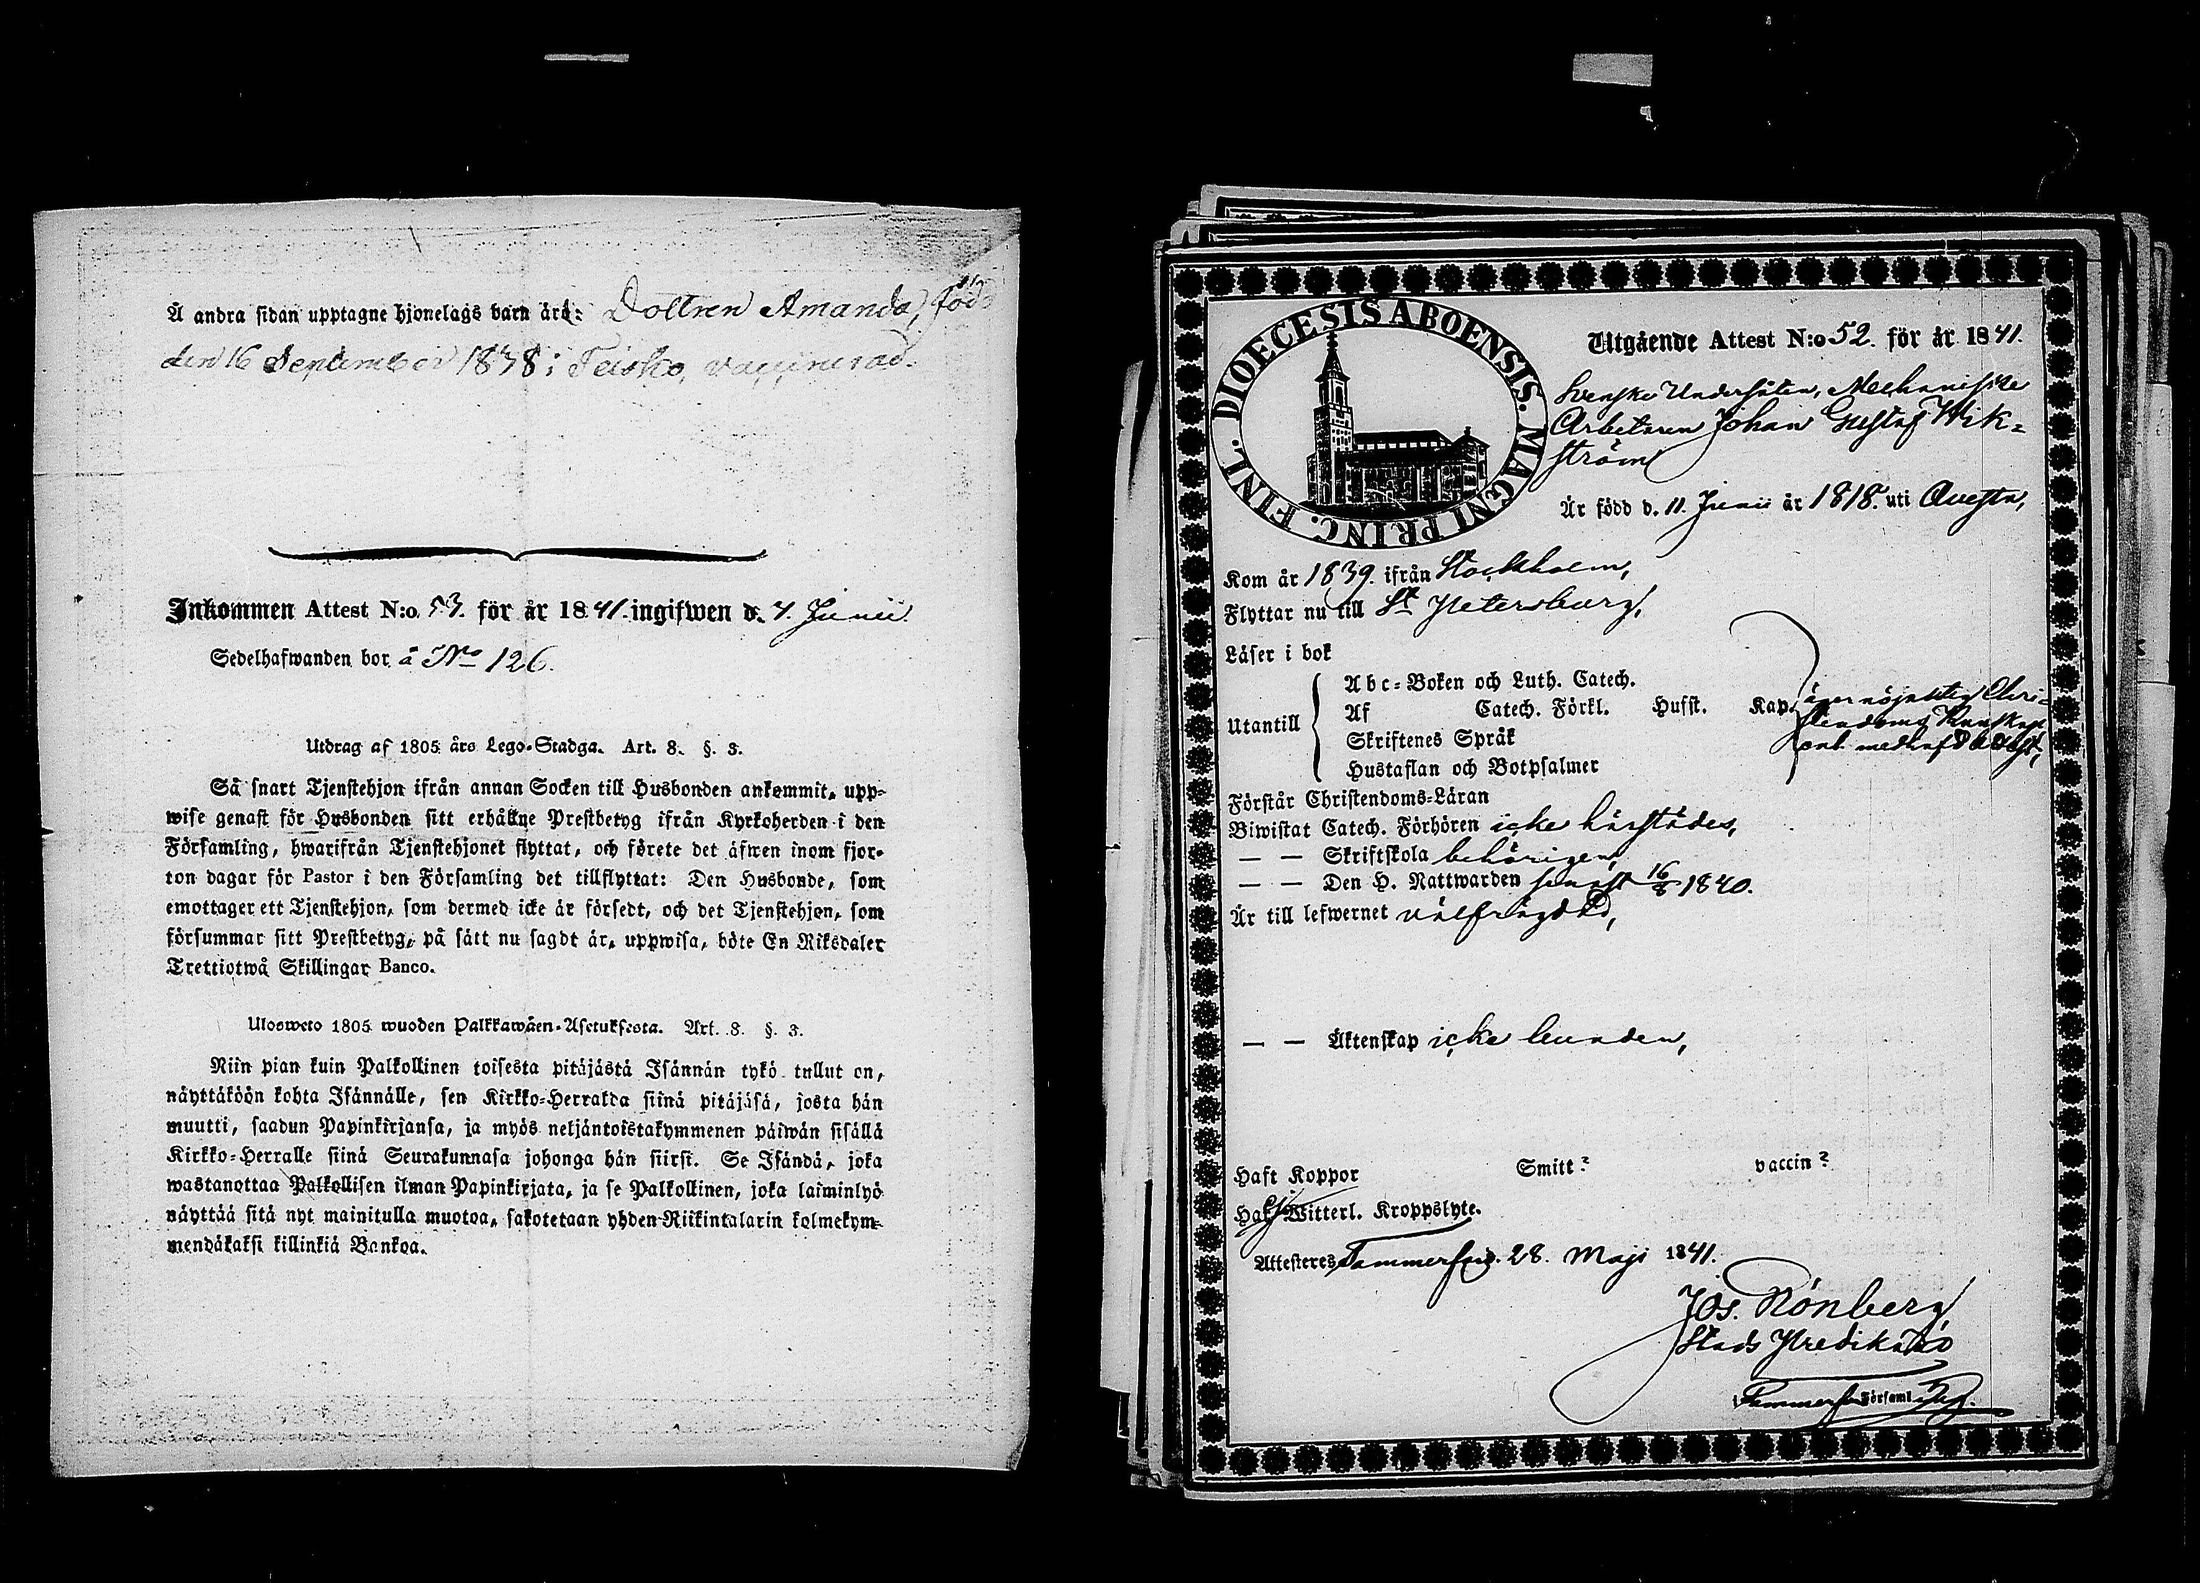 Å andra sidan upptagne hjonelags barn ärä: Dottren Amanda, född
den 16 September 1838 i Teisko, vaccinerad.
Inkommen Attest N:o. 53. för år 1841. ingifwen d. 4. Junii
Sedelhafwanden bor å No 126.
Utdrag af 1805 års Lego-Stadga. Art. 8. §. 3.
Så snart Tjenstehjon ifrån annan Socken till Husbonden ankommit, upp-
wise genast för Husbonden sitt erhållne Prestbetyg ifrån Kyrkoherden i den
Församling, hwarifrån Tjenstehjonet flyttat, och förete det äfwen inom fjor-
ton dagar för Pastor i den Församling det tillflyttat: Den Husbonde, som
emottager ett Tjenstehjon, som dermed icke är försedt, och det Tjenstehjon, som
försummar sitt Prestbetyg, på sätt nu sagdt är, uppwisa, böte En Riksdaler
Trettiotwå Skillingar Banco.
Ulosweto 1805 wuoden Palkkawäen-Asetuksesta. Art. 8. §. 3.
Niin pian kuin Palkollinen toisesta pitäjästä Isännän tykö tullut on,
näyttäköön kohta Isännälle, sen Kirkko-Herralda siinä pitäjäsä, josta hän
muutti, saadun Papinkirjansa, ja myös neljäntoistakymmenen päiwän sisällä
Kirkko-Herralle siinä Seurakunnasa johonga hän siirsi. Se Isändä, joka
wastanottaa Palkollisen ilman Papinkirjata, ja se Palkollinen, joka laiminlyö
näyttää sitä nyt mainitulla muotoa, sakotetaan yhden Riikintalarin kolmekym-
mendäkaksi killinkiä Bankoa.
DIOECESIS ABOENSIS. MAGNI PRINC. FINL.
Utgående Attest N:o 52. för år 1841.
Svenske Undersåten, Mechaniske
Arbetaren Johan Gustaf Wik=
ström
Är född d. 11. Junii år 1818. uti Avesta,
Kom år 1839. ifrån Stockholm,
Flyttar nu till St Petersburg,
Läser i bok
Utantill
Abc-Boken och Luth. Catech.
Af Catech. Förkl. Hufst. Kap.
Skriftenes Språk
Hustaflan och Botpsalmer
äger nöjaktig Chri-
stendoms Kunskap
Förstår Christendoms-Läran
Biwistat Catech. Förhören icke härstädes,
— — Skriftskola behörigen,
— — Den H. Nattwarden senast 16/8 1840.
Är till lefwernet välfrägdad,
— — Äktenskap icke bunden,
Haft Koppor Smitt? vaccin?
Witterl. Kroppslyte.
Attesteres Tammerfors. 28. Maji 1841.
Jos. Rönberg
Stads Predikant
Tammerfors Församl.